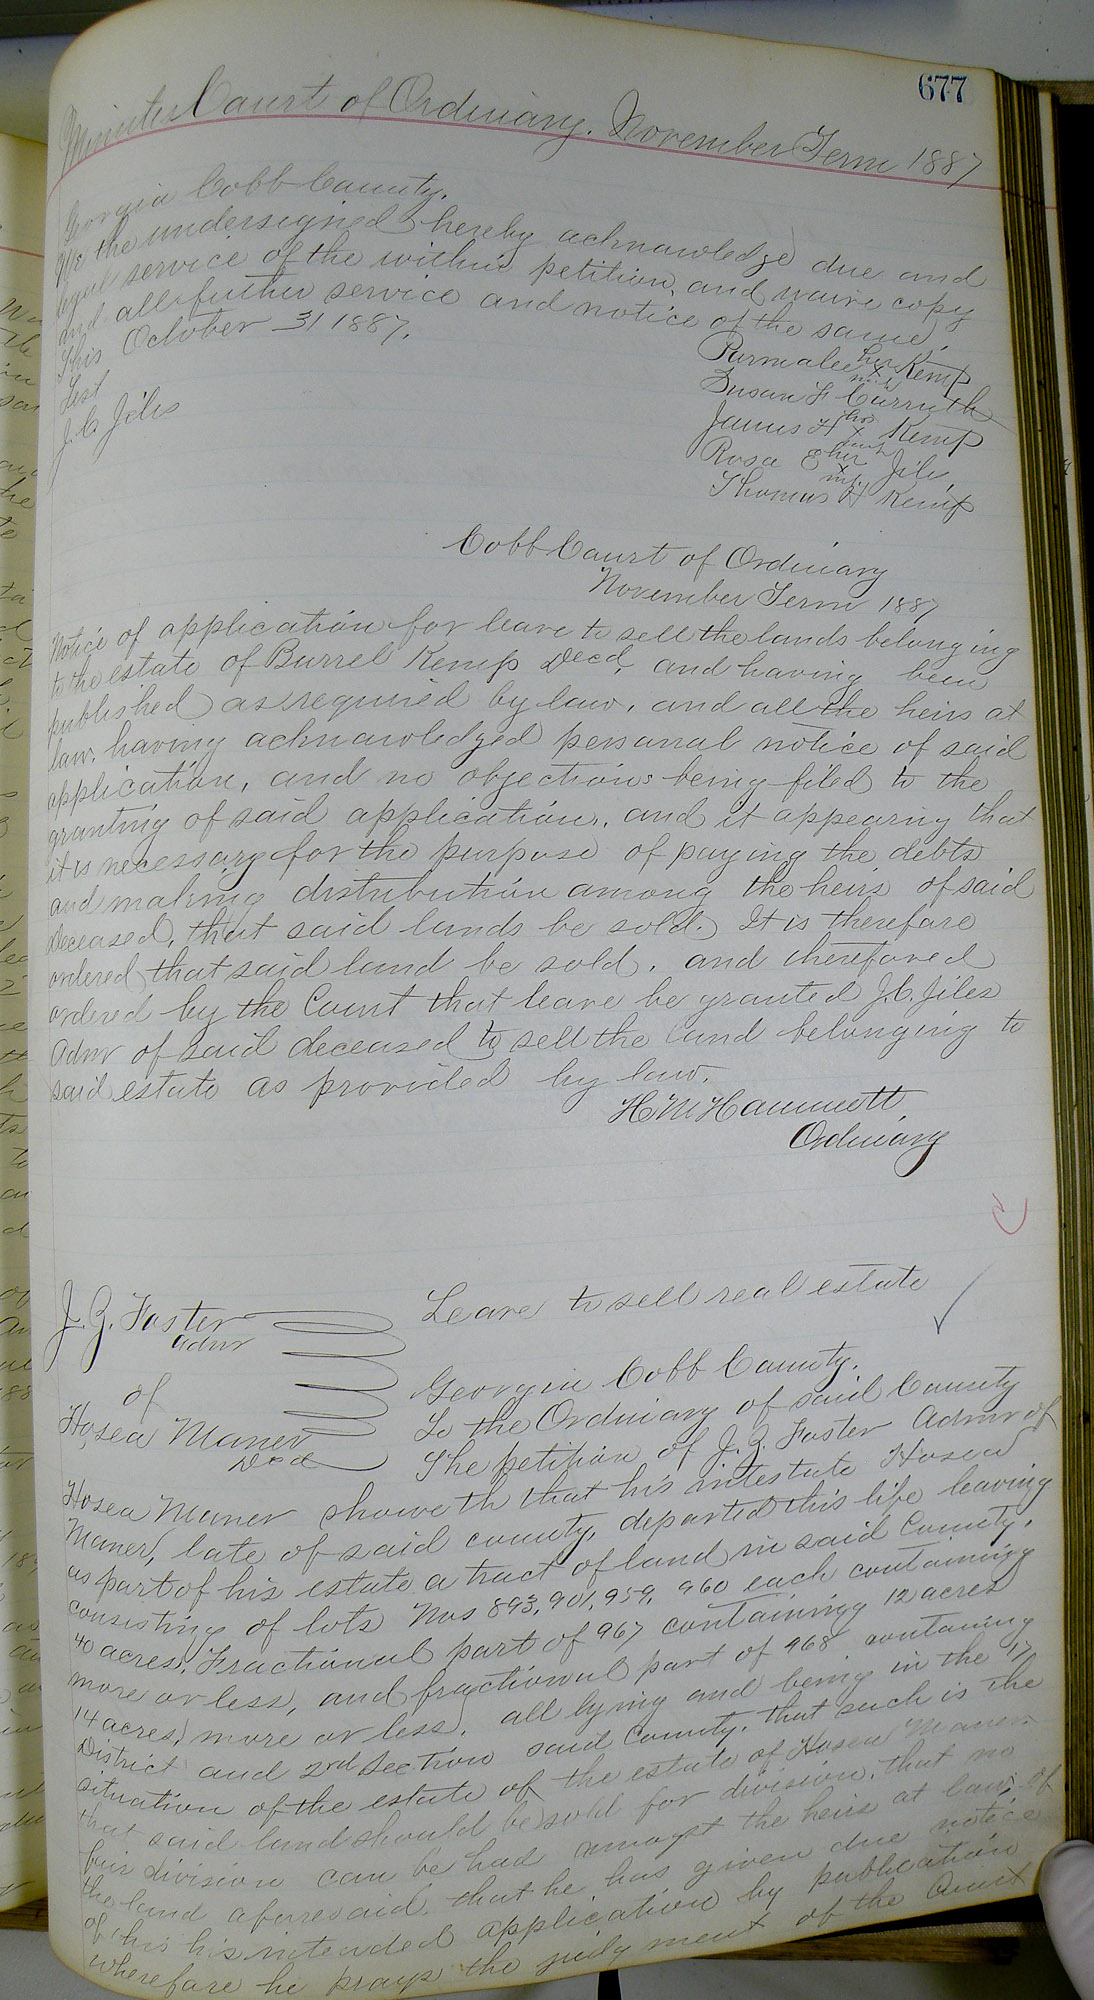 677
Minutes Court of Ordinary. November Term 1887
Georgia Cobb County.
We the undersigned hereby acknowledge due and
legal service of the within petition, and waive copy
and all further service and notice of the same.
This October 31 1887.
Test
J. C. Jiles
Parmalee her x mark Kemp
Susan F Carruth
James H his x mark Kemp
Rosa E her x mk Jiles
Thomas H Kemp
Cobb Court of Ordinary
November Term 1887
Notice of application for leave to sell the lands belonging
to the estate of Burrel Kemp Decd, and having been
published as required by law, and all the heirs at
law, having acknowledged personal notice of said
application, and no objections being filed to the
granting of said application, and it appearing that
it is necessary for the purpose of paying the debts
and making distribution among the heirs of said
deceased, that said lands be sold. It is therefore
ordered that said land be sold, and therefored
ordered by the Court that leave be granted J. C. Jiles
Admr of said deceased to sell the land belonging to
said estate as provided by law.
H M Hammett,
Ordinary
J. Z. Foster
Admr
of
Hosea Maner
Decd
Leave to sell real estate
Georgia Cobb County.
To the Ordinary of said County
The petition of J. Z. Foster Admr of
Hosea Maner showeth that his intestate Hosea
Maner, late of said county, departed this life leaving
as part of his estate a tract of land in said County,
consisting of lots Nos 893, 901, 959, 960 each containing
40 acres, Fractional part of 967 containing 12 acres
more or less, and fractional part of 968 containing
14 acres, more or less, all lying and being in the 17
District and 2nd Section said County, that such is the
situation of the estate of the estate of Hosea Maner
that said land should be sold for division, that no
fair division can be had amongst the heirs at law, of
the land aforesaid, that he has given due notice
of his his intended application by publication
wherefore he prays the judgment of the Court